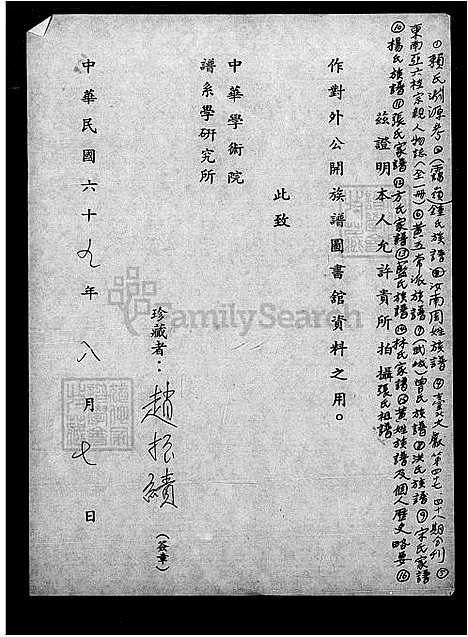 ①賴氏淵源考②(霱蘋)鍾氏族譜③汝南周姓族譜④臺北文獻第四七、四十八期合刊⑤
東南亞六桂宗親人物誌(全一冊)⑥黃五常派族譜⑦(武城)曾氏族譜⑧洪氏族譜⑨宋氏家譜
⑩楊氏族譜⑪張氏家譜⑫方氏家譜⑬藍氏族譜⑭林氏家譜⑮黃姓族譜及個人歷史略要⑯
茲證明本人允許貴所拍攝張氏祖譜
作對外公開族譜圖書館資料之用。
此致
中華學術院
譜系學研究所
珍藏者：趙振績(簽章)
中華民國六十九年八月七日
FamilySearch